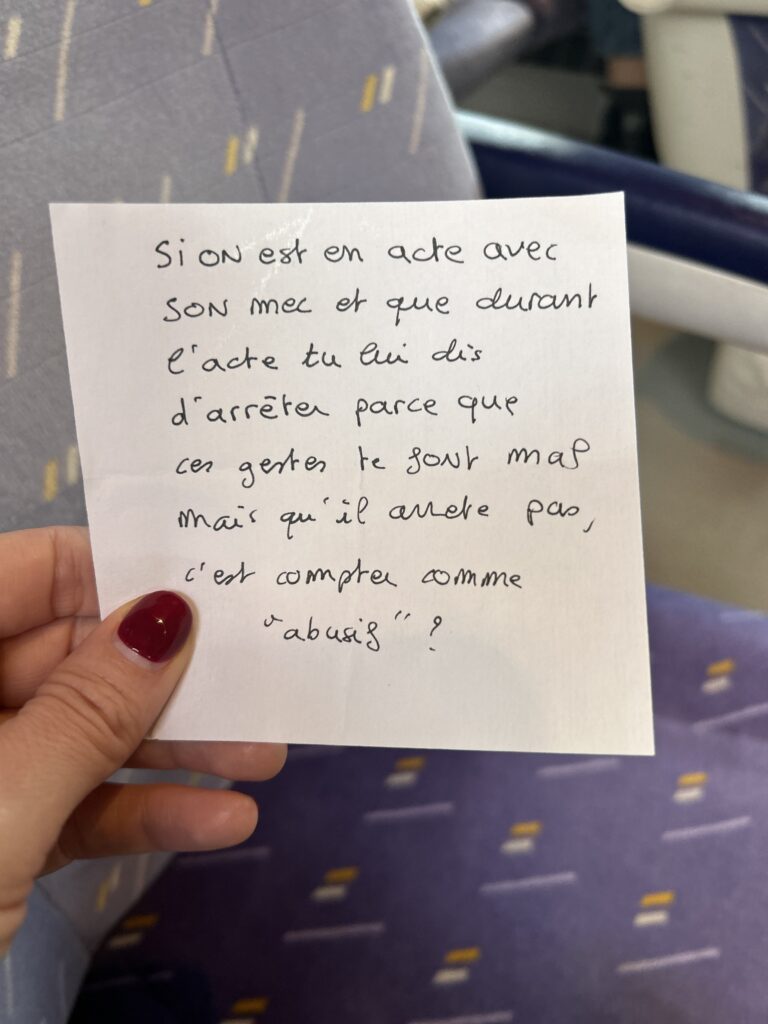 Si on est en acte avec
son mec et que durant
l'acte tu lui dis
d'arrêter parce que
ces gestes te font mal
mais qu'il arrete pas,
c'est compter comme
"abusif" ?